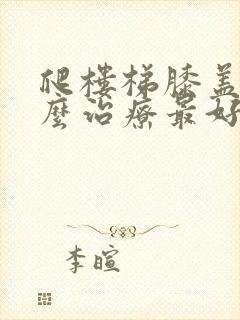 爬樓梯膝蓋
麼治療最好
李暄